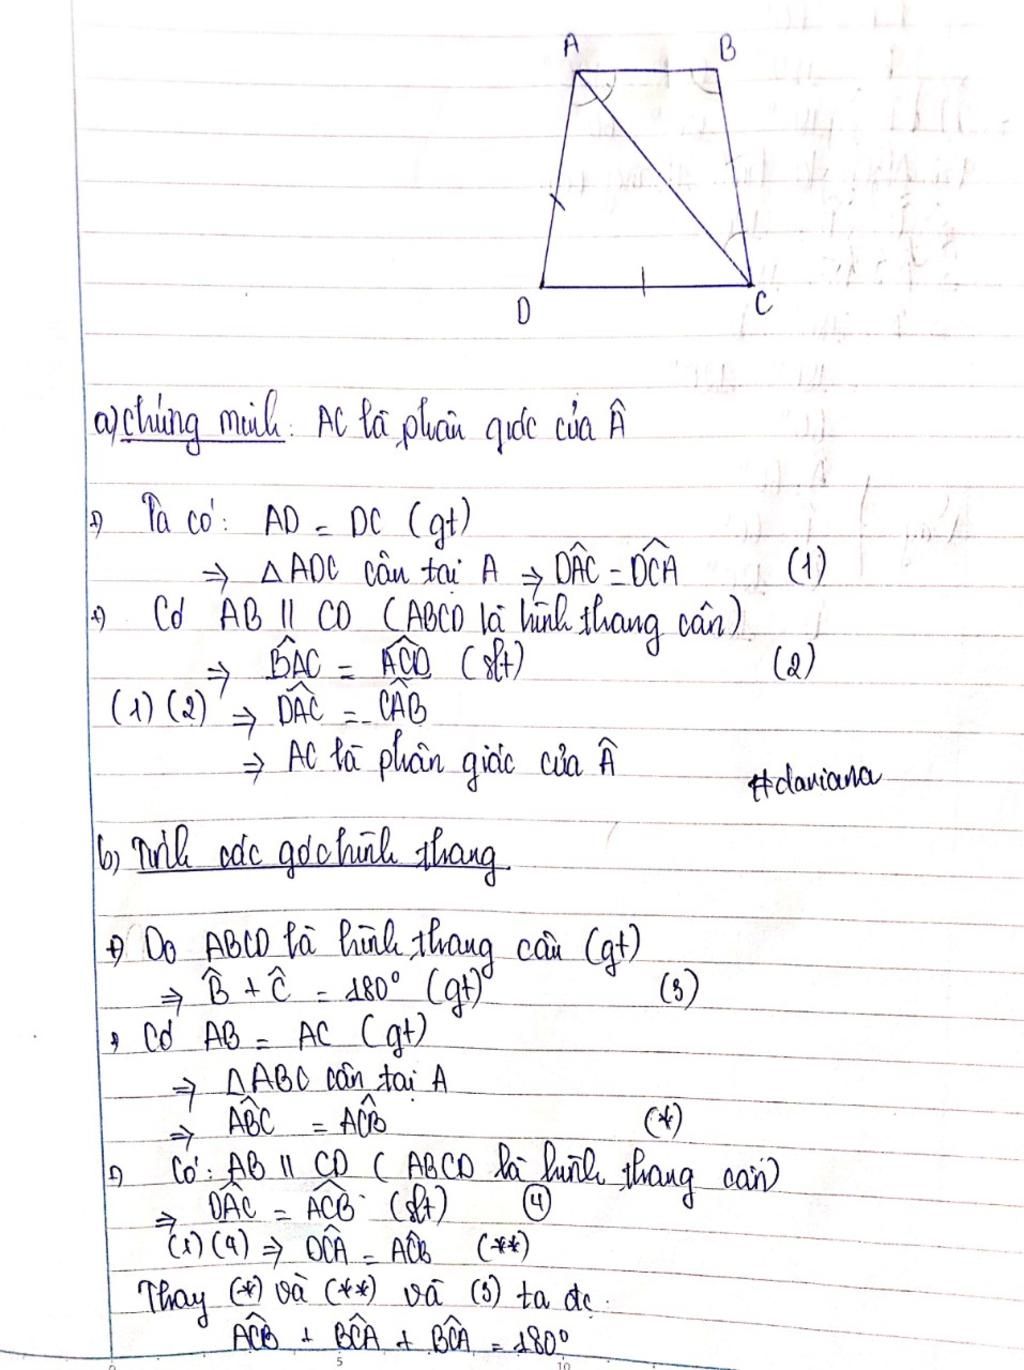 A B
D C
a) Chứng minh: AC là phân giác của Â
+) Ta có: AD = DC (gt)
⇒ △ADC cân tại A ⇒ DÂC = DĈA (1)
+) Có AB // CD (ABCD là hình thang cân)
⇒ BÂC = AĈD (slt) (2)
(1) (2) ⇒ DÂC = CÂB
⇒ AC là phân giác của Â
#daniana
b) Tính các góc hình thang
+) Do ABCD là hình thang cân (gt)
⇒ B̂ + Ĉ = 180° (gt) (3)
+) Có AB = AC (gt)
⇒ △ABC cân tại A
⇒ AB̂C = AĈB (*)
+) Có: AB // CD (ABCD là hình thang cân)
⇒ DÂC = AĈB (slt) (4)
(1) (4) ⇒ DĈA = AĈB (**)
Thay (*) và (**) và (3) ta đc.
AĈB + BĈA + BĈA = 180°
0 5 10